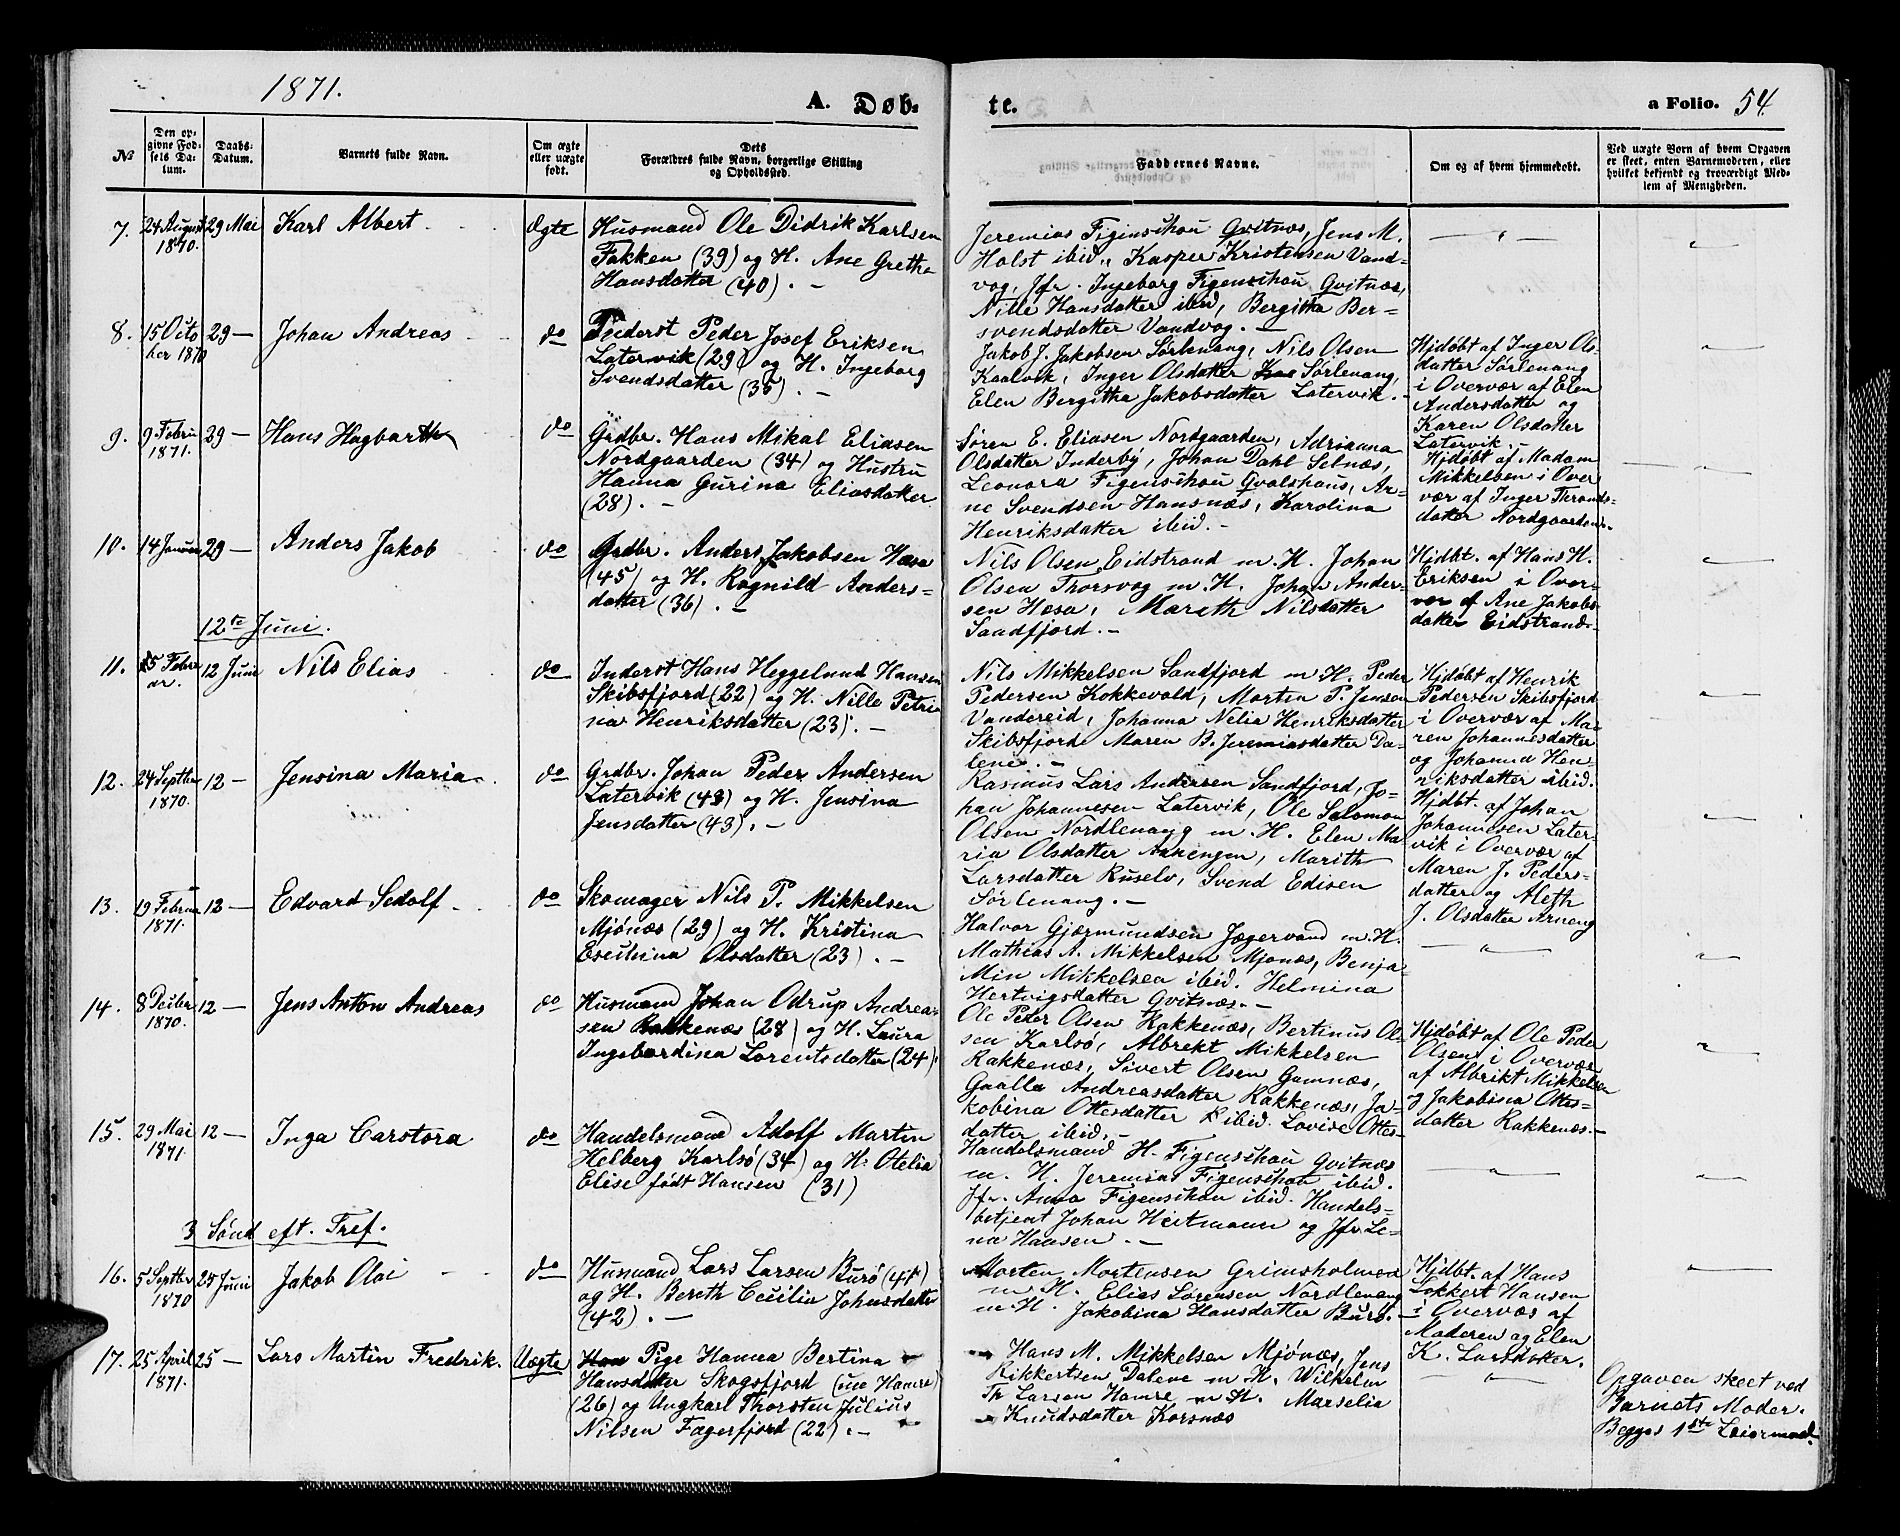 1871.
A. Døb-
te.
a Folio. 54.
№
Den op-
givne Fød-
sels Da-
tum.
Daabs-
Datum.
Barnets fulde Navn.
Om ægte
eller uægte
født.
Dets
Forældres fulde Navn, borgerlige Stilling
og Opholdssted.
Faddernes Navne.
Om og af hvem hjemmedøbt.
Ved uægte Børn af hvem Opgaven
er skeet, enten Barnemoderen, eller
hvilket bekjendt og troværdigt Med-
lem af Menigheden.
7. 24 August 1870. 29 Mai Karl Albert Ægte
Husmand Ole Didrik Karlsen
Fakken (39) og H. Ane Grethe
Hansdatter (40). —
Jeremias Figenschou Gvitnæs, Jens M.
Holst ibid., Kasper Kristensen Vand-
vag, Jfr. Ingeborg Figenschou Gvitnæs,
Nille Hansdatter ibid, Bergitha Ber-
svendsdatter Vandvag. —
8. 15 Octo
ber 1870 29 — Johan Andreas do
Inderst Peder Josef Eriksen
Latervik (29) og H. Ingeborg
Svendsdatter (35). —
Jakob J. Jakobsen Sørlenang, Nils Olsen
Kaalvik, Inger Olsdatter Sørlenang,
Elen Bergitha Jakobsdatter Latervik. —
Hjdøbt af Inger Ols-
datter Sørlenang
i Overvær af Elen
Andersdatter og
Karen Olsdatter
Latervik.
9. 9 Febru
1871. 29 — Hans Hagbarth do
Grdbr. Hans Mikal Eliasen
Nordgaarden (34) og Hustru
Hanna Gurina Eliasdatter
(28). —
Søren E. Eliasen Nordgaarden, Adrianna
Olsdatter Inderby, Johan Dahl Selnæs,
Leonora Figenschou Gvalshaus, Ar-
ne Svendsen Hansnæs, Karolina
Henriksdatter ibid. —
Hjdøbt af Madam
Mikkelsen i Over
vær af Inger Thrands-
datter Nordgaarden.
10. 14 Januar 29 — Anders Jakob do
Grdbr. Anders Jakobsen Hæsa
(45) og H. Ragnild Anders-
datter (36). —
Nils Olsen Eidstrand m. H. Johan
Olsen Thorsvag m. H. Johan Ander-
sen Hæsa, Mareth Nilsdatter
Sandfjord. —
Hjdbt. af Hans H.
Eriksen i Over-
vær af Ane Jakobs
datter Eidstrand.
12te Juni.
11. 15 Febru
ar. 12 Juni Nils Elias do
Inderst Hans Heggelund Hansen
Skibsfjord (22) og H. Nille Petri
na Henriksdatter (23). —
Nils Mikkelsen Sandfjord m H. Peder
Pedersen Kokkevold, Morten P. Jensen
Vandereid, Johanna Nelia Henriksdatter
Skibsfjord Maren B. Jeremiasdatter Da-
lene. —
Hjdøbt af Henrik
Pedersen Skibsfjord
i Overvær af Ma-
ren Johannesdatter
og Johanna Hen-
riksdatter ibid.
12. 24 Septber
1870. 12 — Jensina Maria do
Grdbr. Johan Peder Andersen
Latervik (43) og H. Jensina
Jensdatter (43). —
Rasmus Lars Andersen Sandfjord, Jo-
han Johannesen Latervik, Ole Salomon
Olsen Nordlenang m. H. Elen Ma-
ria Olsdatter Arnengen, Marith
Larsdatter Ruselv, Svend Edisen
Sørlenang. —
Hjdbt. af Johan
Johannesen Later-
vik i Overvær af
Maren J. Peders-
datter og Aleth
J. Olsdatter Arneng
13. 19 Februar
1871. 12 — Edvard Sedolf do
Skomager Nils P. Mikkelsen
Mjønæs (29) og H. Kristina
Eselina Olsdatter (23). —
Halvor Gjørmundsen Jægervand m. H.
Mathias A. Mikkelsen Mjønæs, Benja
Min Mikkelsen ibid. Helmina
Hertvigsdatter Gvitnæs. —
14. 8 Decbr
1870. 12 — Jens Anton Andreas do
Husmand Johan Odrup Andrea-
sen Rakkenæs (28) og H. Laura
Ingebordina Lorentsdatter (24).
Ole Peder Olsen Rakkenæs, Bertinus Ol-
sen Karlsø, Albrekt Mikkelsen
Rakkenæs, Sivert Olsen Gamnæs,
Gaalla Andreasdatter Rakkenæs, Ja-
kobina Ottesdatter ibid. Lovise Ottes-
datter ibid. —
Hjdøbt af Ole Peder
Olsen i Overvær
af Albrikt Mikkelsen
og Jakobina Ottes-
datter Rakkenæs. —
15. 29 Mai
1871. 12 — Inga Carstora do
Handelsmand Adolf Martin
Helberg Karlsø (34) og H. Otelia
Elise født Hansen (31)
Handelsmand H. Figenschou Gvitnæs
m. H. Jeremias Figenschou ibid.
Jfr. Anna Figenschou ibid. Handels-
betjent Johan Heitmann og Jfr. Le-
na Hansen. —
3 Sønd eft. Tref.
16. 5 Septber
1870 25 Juni Jakob Olai do
Husmand Lars Larsen Burø (41)
og H. Bereth Cecilia Johnsdatter
(42). —
Morten Mortensen Grimsholmen
m H. Elias Sørensen Nordlenang
m H. Jakobina Hansdatter Burø. —
Hjdbt. af Hans
Lokkert Hansen
i Overvær af
Moderen og Elen
K. Larsdatter.
17. 25 April
1871. 25 — Lars Martin Fredrik. Uægte
Pige Hanna Bertina
Hansdatter Skogsfjord (nu Hamre)
(26) og Ungkarl Thorsten Julius
Nilsen Fagerfjord (22). —
Hans M. Mikkelsen Mjønæs, Jens
Rikkertsen Dalene m H. Wilhelm
Th Larsen Hamre m H. Marselia
Knudsdatter Korsnæs
Opgaven skeet ved
Barnets Moder.
Begges 1ste Leiermaal.